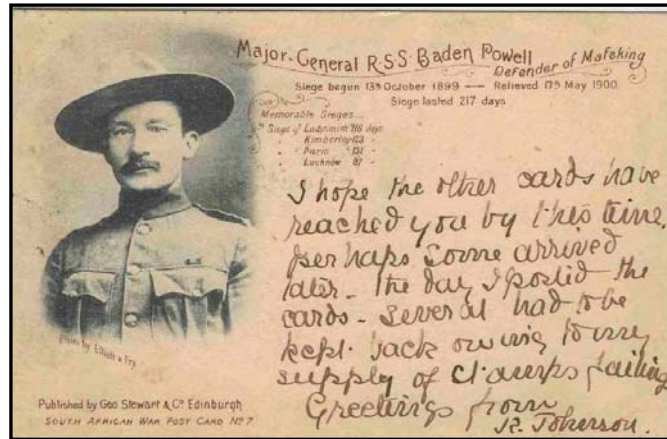 Major-General R.S.S. Baden Powell
Defender of Mafeking
Siege begun 13th October 1899 — Relieved 17th May 1900
Siege lasted 217 days
Memorable Sieges
Siege of Ladysmith 118 days
" Kimberley 123 "
" Paris 131 "
" Lucknow 87 "
I hope the other cards have
reached you by this time,
perhaps some arrived
later – the day I posted the
cards – several had to be
kept back owing to my
supply of stamps failing
Greetings from
Photo by Elliott & Fry
Published by Geo Stewart & Co Edinburgh
SOUTH AFRICAN WAR POST CARD No 7